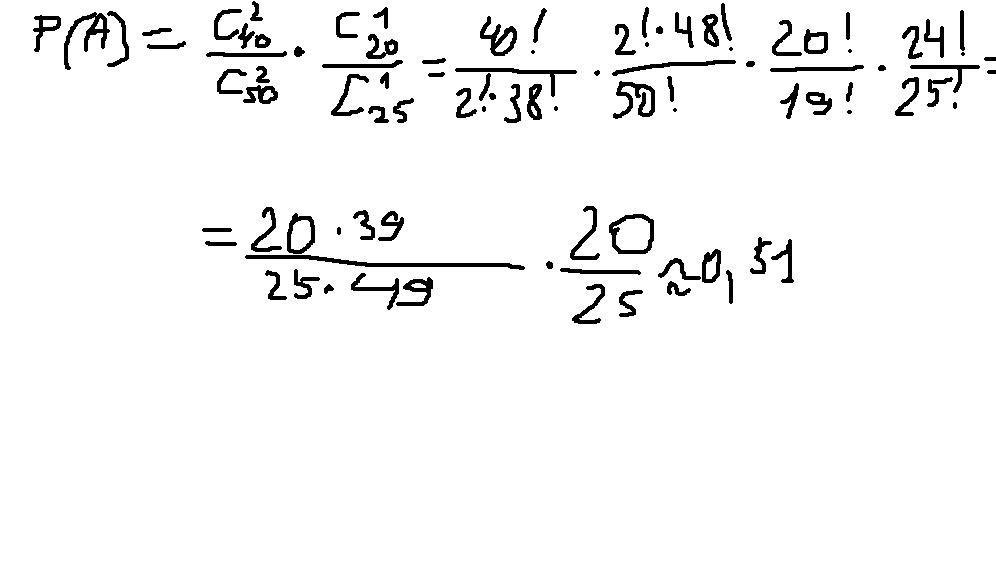 P(A) = C²₄₀/C²₅₀ · C¹₂₀/C¹₂₅ = 40!/(2!·38!) · (2!·48!)/50! · 20!/19! · 24!/25! =
= (20·39)/(25·49) · 20/25 ≈ 0,51